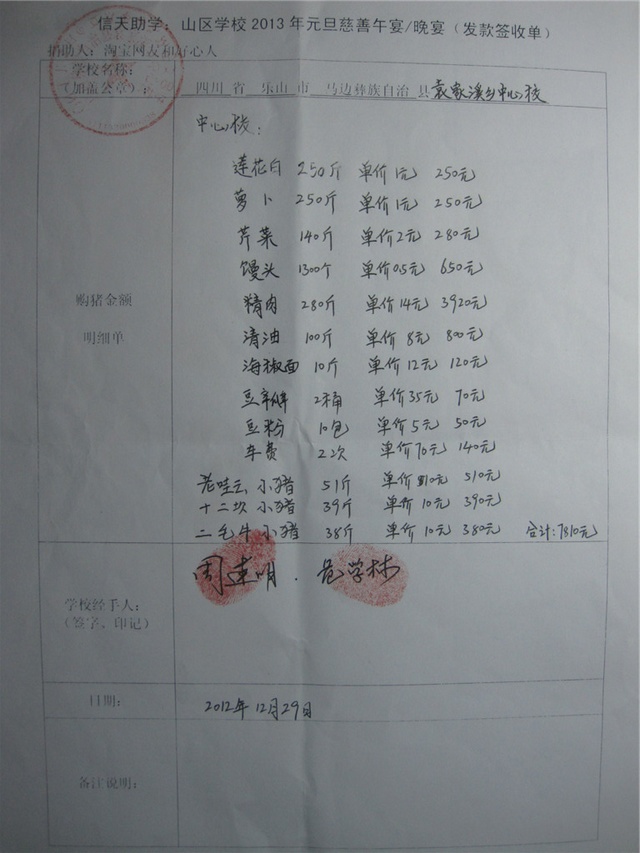 信天助学：山区学校2013年元旦慈善午宴/晚宴（发款签收单）
捐助人：淘宝网友和好心人
学校名称：
（加盖公章）：
四川 省 乐山 市 马边彝族自治 县 袁家溪乡中心校
中心校：
莲花白 250斤 单价1元 250元
萝卜 250斤 单价1元 250元
芹菜 140斤 单价2元 280元
馒头 1300个 单价0.5元 650元
精肉 280斤 单价14元 3920元
清油 100斤 单价8元 800元
海椒面 10斤 单价12元 120元
豆瓣 2桶 单价35元 70元
豆粉 10包 单价5元 50元
车费 2次 单价70元 140元
老哇云 小猪 51斤 单价10元 510元
十二坎 小猪 39斤 单价10元 390元
二毛牛 小猪 38斤 单价10元 380元 合计：7810元
购猪金额
明细单
周连明 . 学林
学校经手人：
（签字、印记）
日期：
2012年12月29日
备注说明：